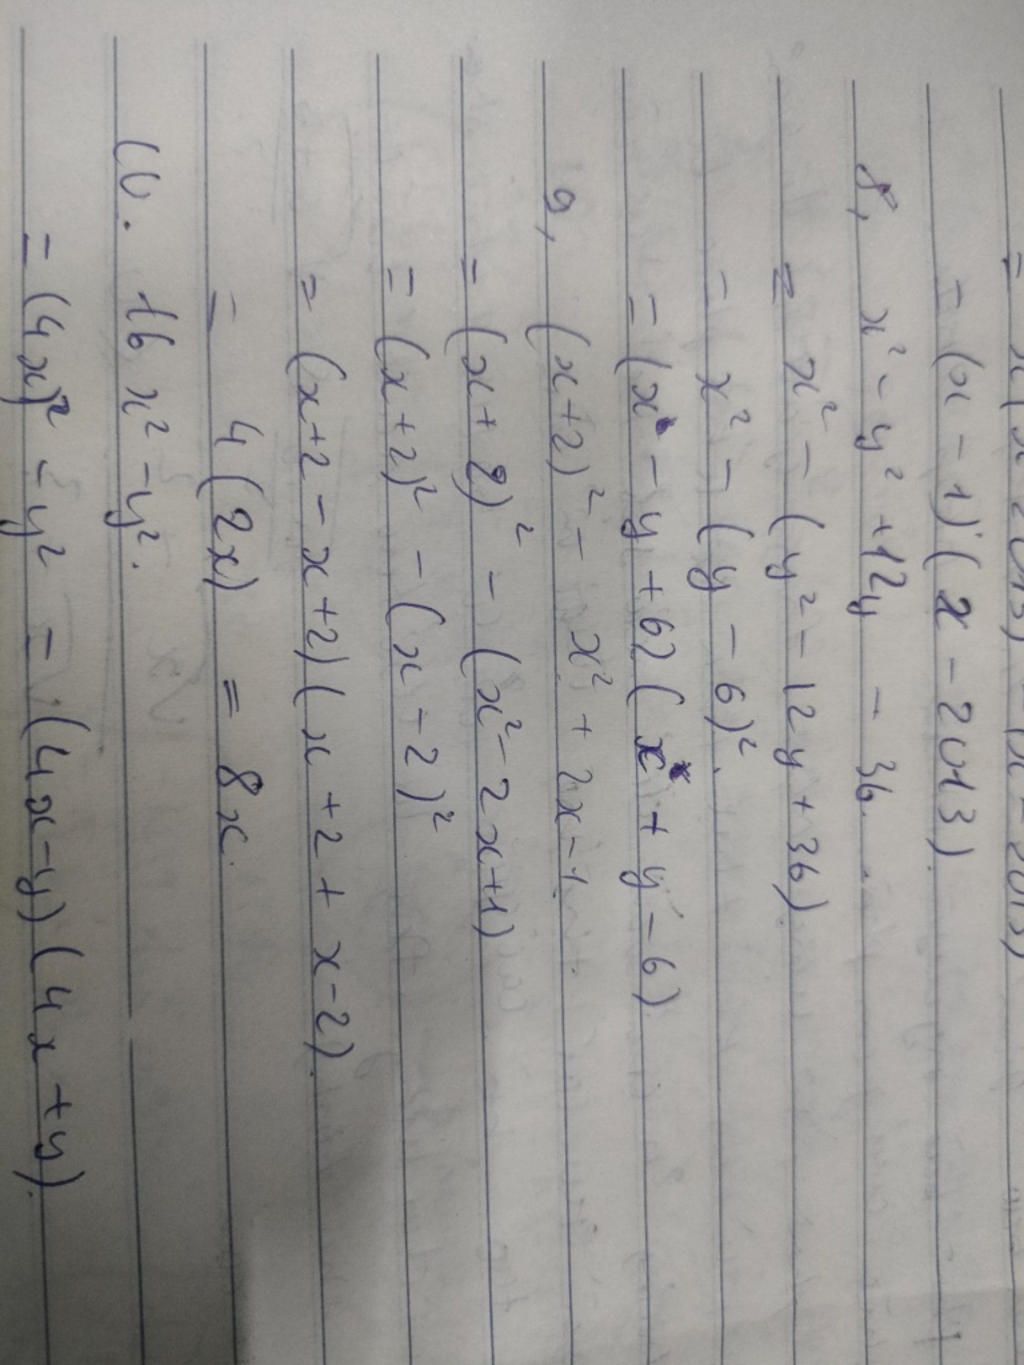 = (x - 1)(x - 2013)
8, x² - y² + 12y - 36.
= x² - (y² - 12y + 36)
= x² - (y - 6)².
= (x - y + 62(x + y - 6)
9, (x+2)² - x² + 2x - 1.
= (x+2)² - (x² - 2x+1)
= (x+2)² - (x - 2)²
= (x+2 - x+2)(x +2 + x - 2).
= 4(2x) = 8x.
10. 16x² - y².
= (4x)² - y² = (4x - y)(4x + y).